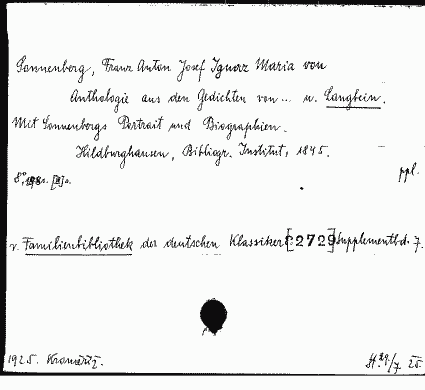 Sonnenberg, Franz Anton Josef Ignaz Maria von
Anthologie aus den Gedichten von ... u. Langbein.
Mit Sonnenbergs Portrait und Biographien.
Hildburghausen, Bibliogr. Institut, 1845.
ppl.
8°,
v. Familienbibliothek der deutschen Klassiker [:2729] Supplementbd. 7.
1925.